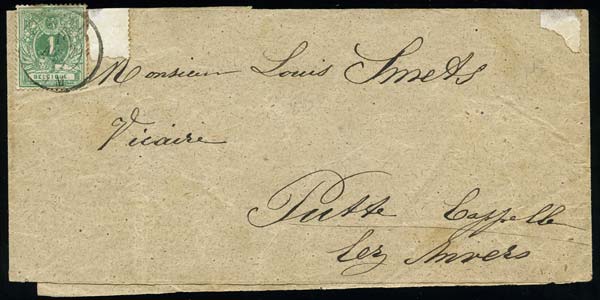 1
BELGIQUE
Monsieur Louis Smets
Vicaire
Putte Cappelle
lez Anvers